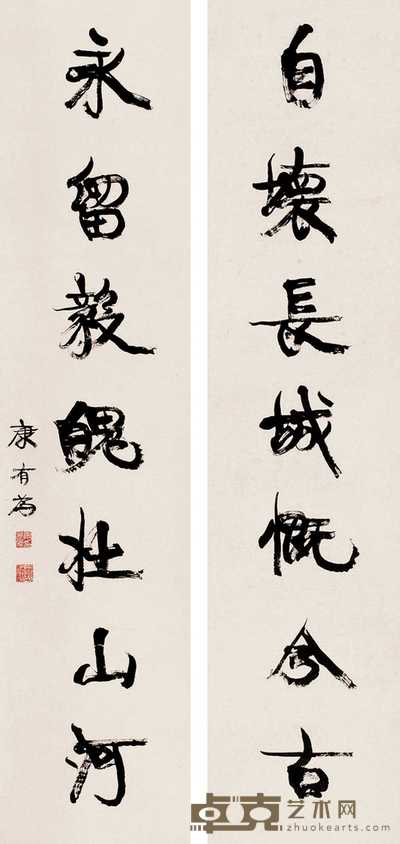 自壞長城慨今古
永留毅魄壯山河
康有為
卓克艺术网
zhuokearts.com